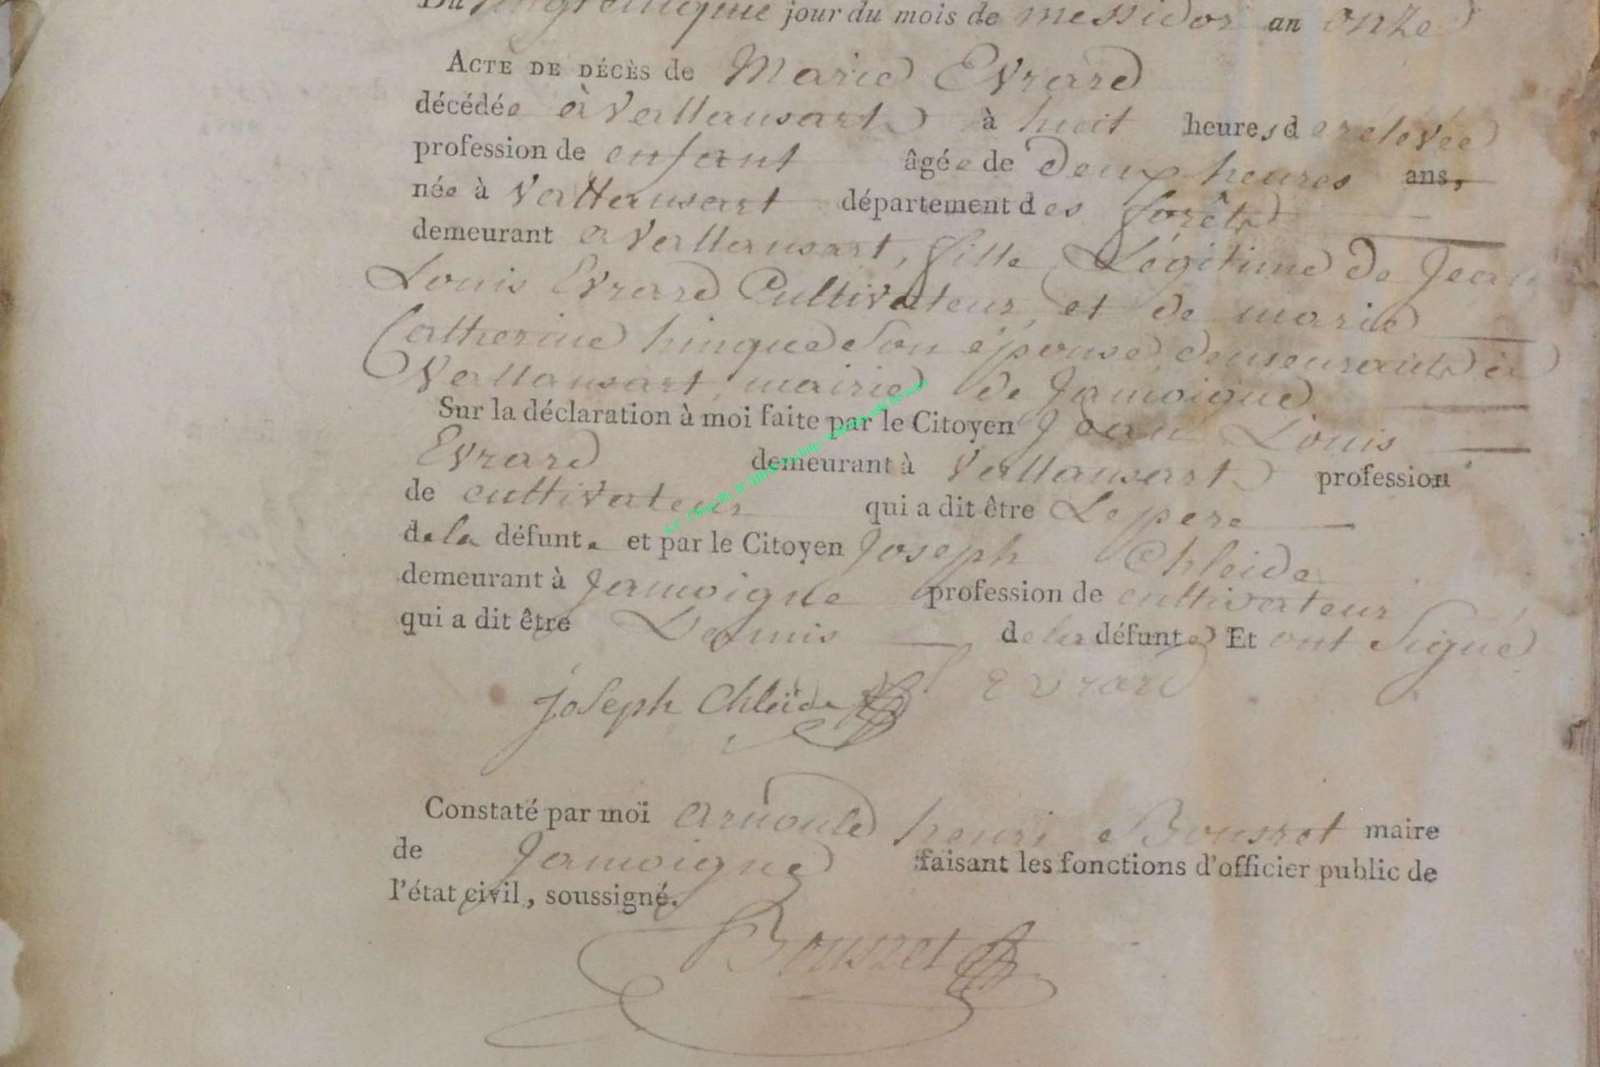 Du vingt cinquieme jour du mois de messidor an onze
ACTE DE DÉCÈS de Marie Evrard
décédée à Vallansart à huit heures de relevée
profession de enfant âgée de deux heures ans,
née à Vallansart département des forêts
demeurant a Vallansart, fille Légitime de Jean
Louis Evrard Cultivateur, et de marie
Catherine hinque Son épouse, demeurants à
Vallansart, mairie de Jamoigne
Sur la déclaration à moi faite par le Citoyen Jean Louis
Evrard demeurant à Vallansart profession
de cultivateur qui a dit être Le pere
de la défunte et par le Citoyen Joseph Chleide
demeurant à Jamoigne profession de cultivateur
qui a dit être L'amis de la défunte Et ont Signé
Joseph Chleide Evrard
Constaté par moi Arnould henri Bousret maire
de Jamoigne faisant les fonctions d'officier public de
l'état civil, soussigné.
Bousret